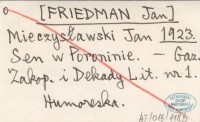 [FRIEDMAN Jan]
Mieczysławski Jan 1923.
Sen w Poroninie. - Gaz.
Zakop. i Dekady Lit. nr 1.
Humoreska.